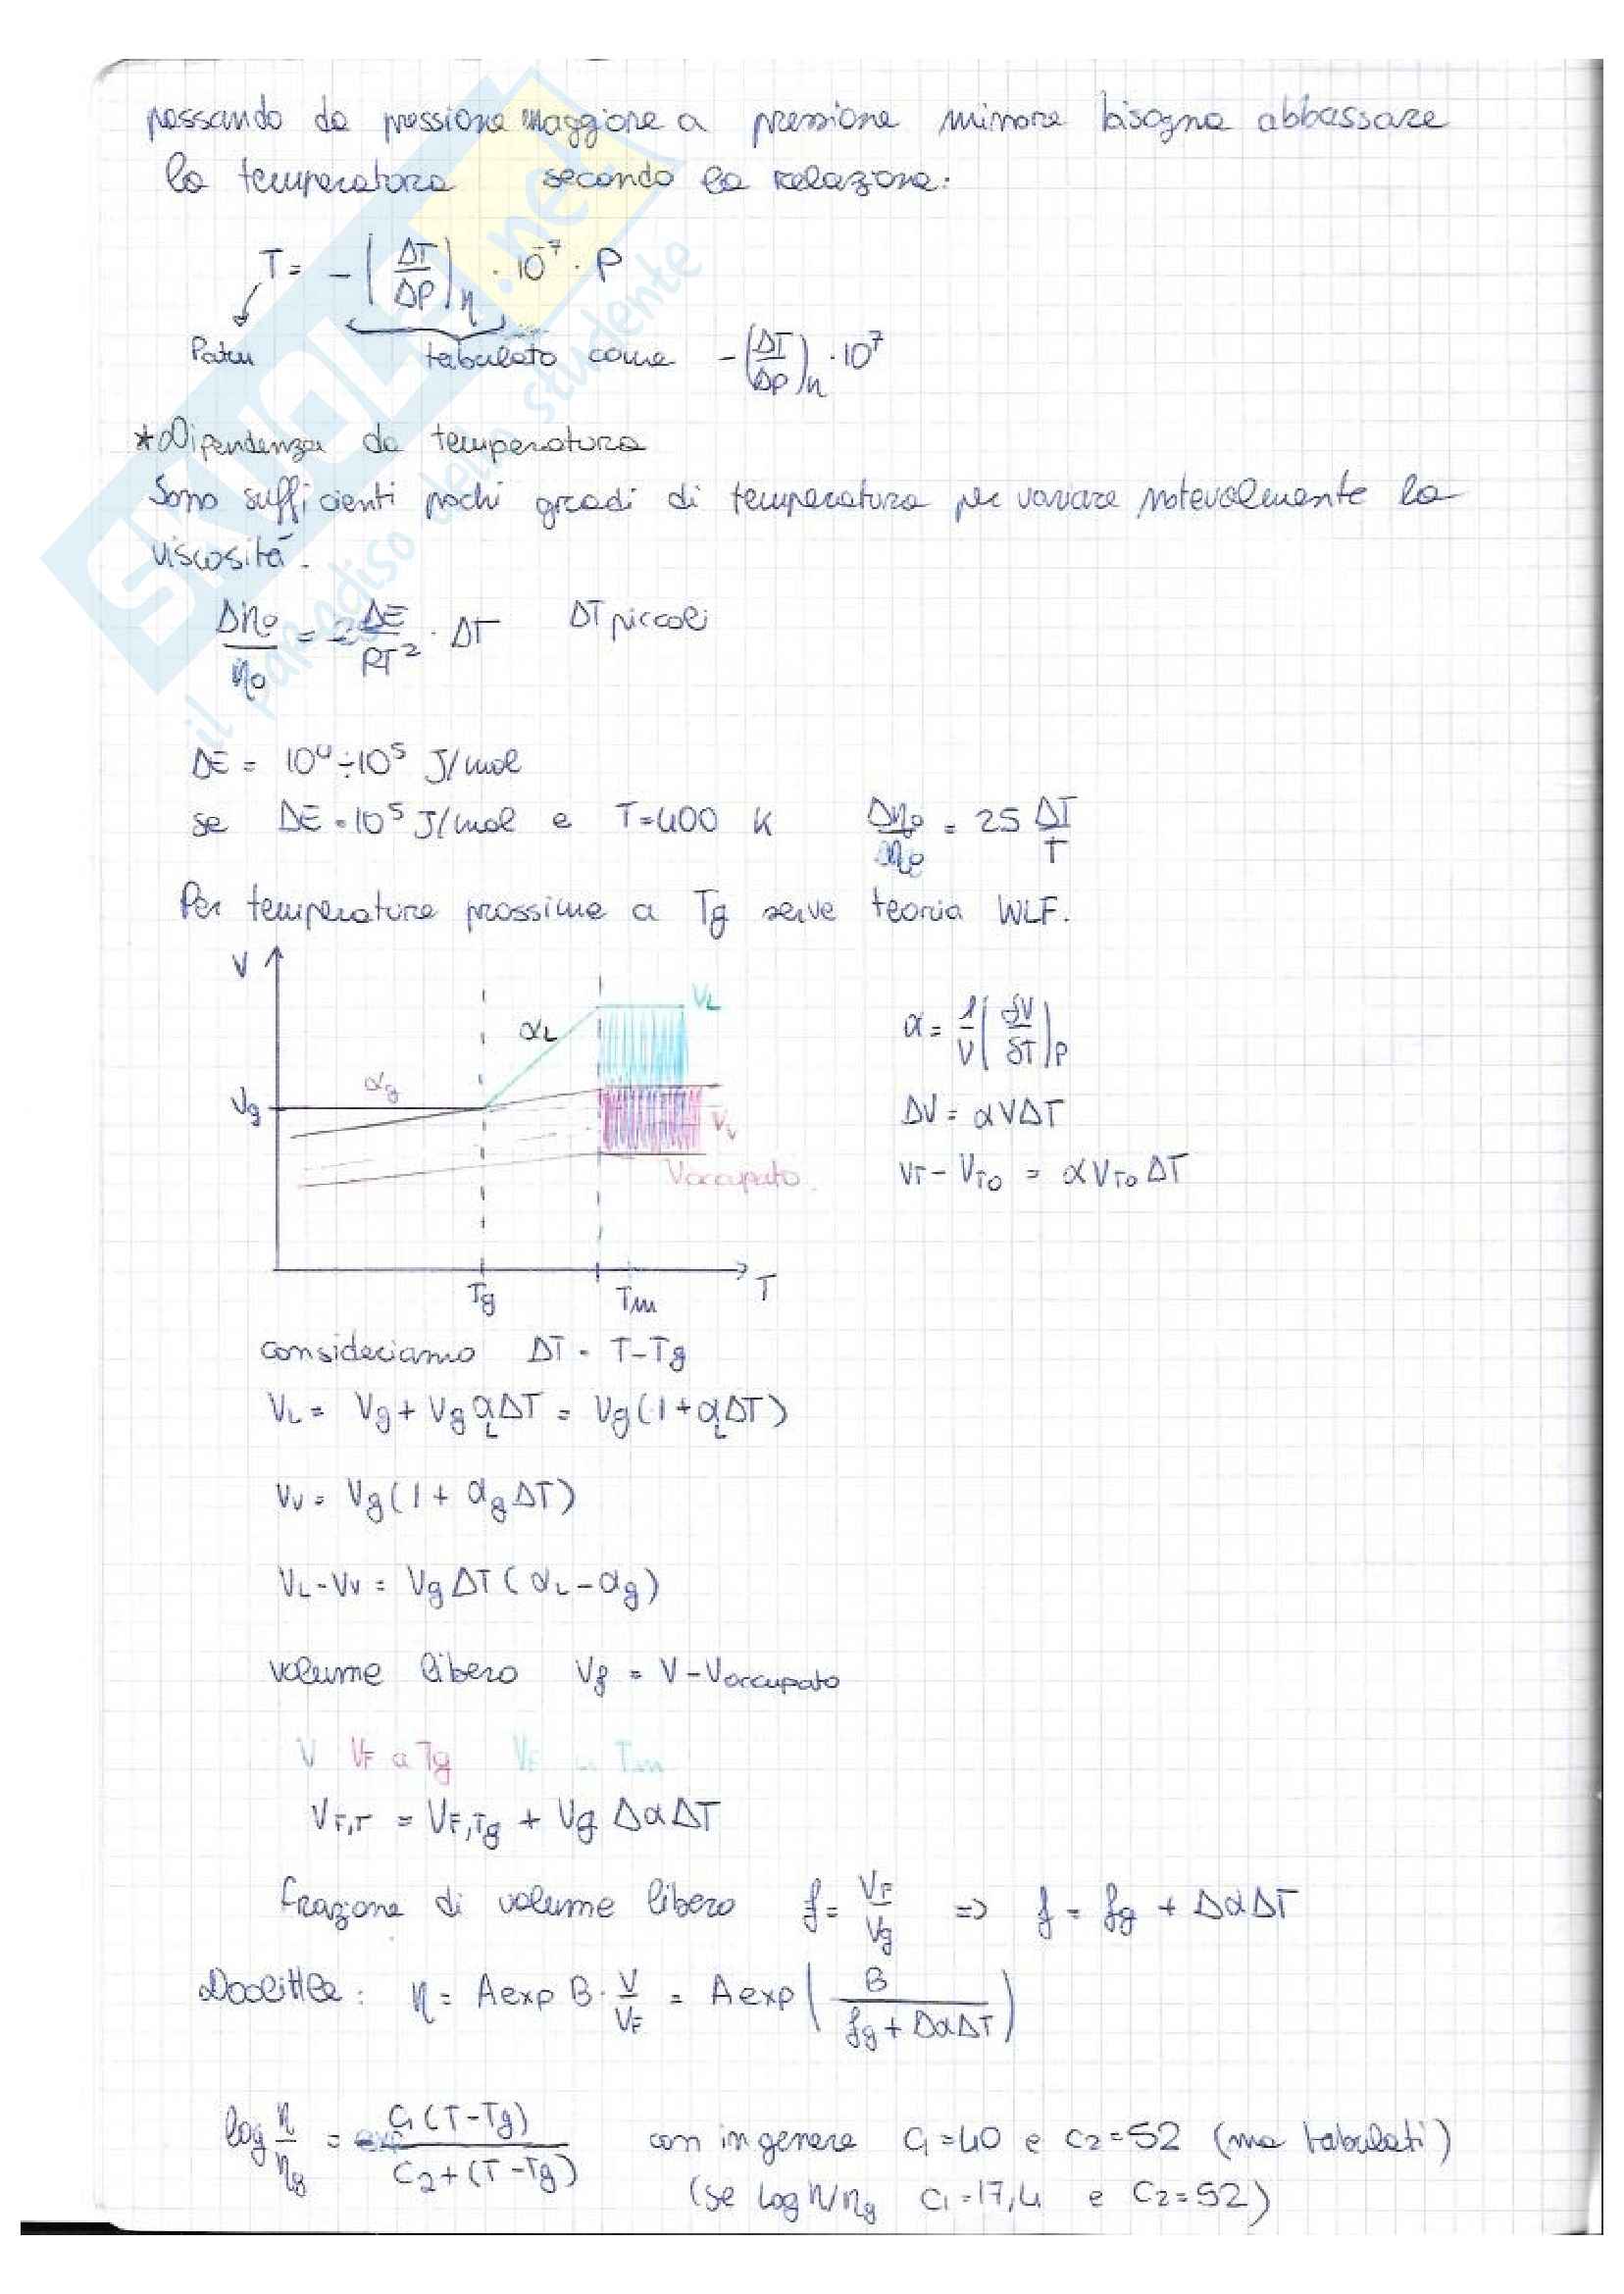 passando da pressione maggiore a pressione minore bisogna abbassare
la temperatura secondo la relazione:
T = -(ΔT/ΔP)η · 10⁻⁷ · P
Patm tabulato come -(ΔT/ΔP)η · 10⁷
*Dipendenza da temperatura
Sono sufficienti pochi gradi di temperatura per variare notevolmente la
viscosità.
Δη₀/η₀ = ΔE/RT² · ΔT ΔT piccoli
ΔE = 10⁴ ÷ 10⁵ J/mol
se ΔE = 10⁵ J/mol e T = 400 K Δη₀/η₀ = 25 ΔT/T
Per temperature prossime a Tg serve teoria WLF.
V
VL
αL
αg
Vg
Vv
Voccupato
Tg Tm T
α = 1/V (δV/δT)P
ΔV = αVΔT
VT - VT0 = αVT0ΔT
consideriamo ΔT = T-Tg
VL = Vg + VgαLΔT = Vg(1+αLΔT)
Vv = Vg(1+αgΔT)
VL-Vv = VgΔT(αL-αg)
volume libero Vf = V-Voccupato
V VF a Tg VF a Tm
VF,T = VF,Tg + Vg ΔαΔT
frazione di volume libero f = VF/Vg => f = fg + ΔαΔT
Doolittle: η = A exp B · V/VF = A exp(B/(fg+ΔαΔT))
log η/ηg = - C1(T-Tg)/(C2+(T-Tg)) con in genere C1=40 e C2=52 (ma tabulati)
(se log η/ηg C1=17,4 e C2=52)
SKUOLA.net
il paradiso dello studente